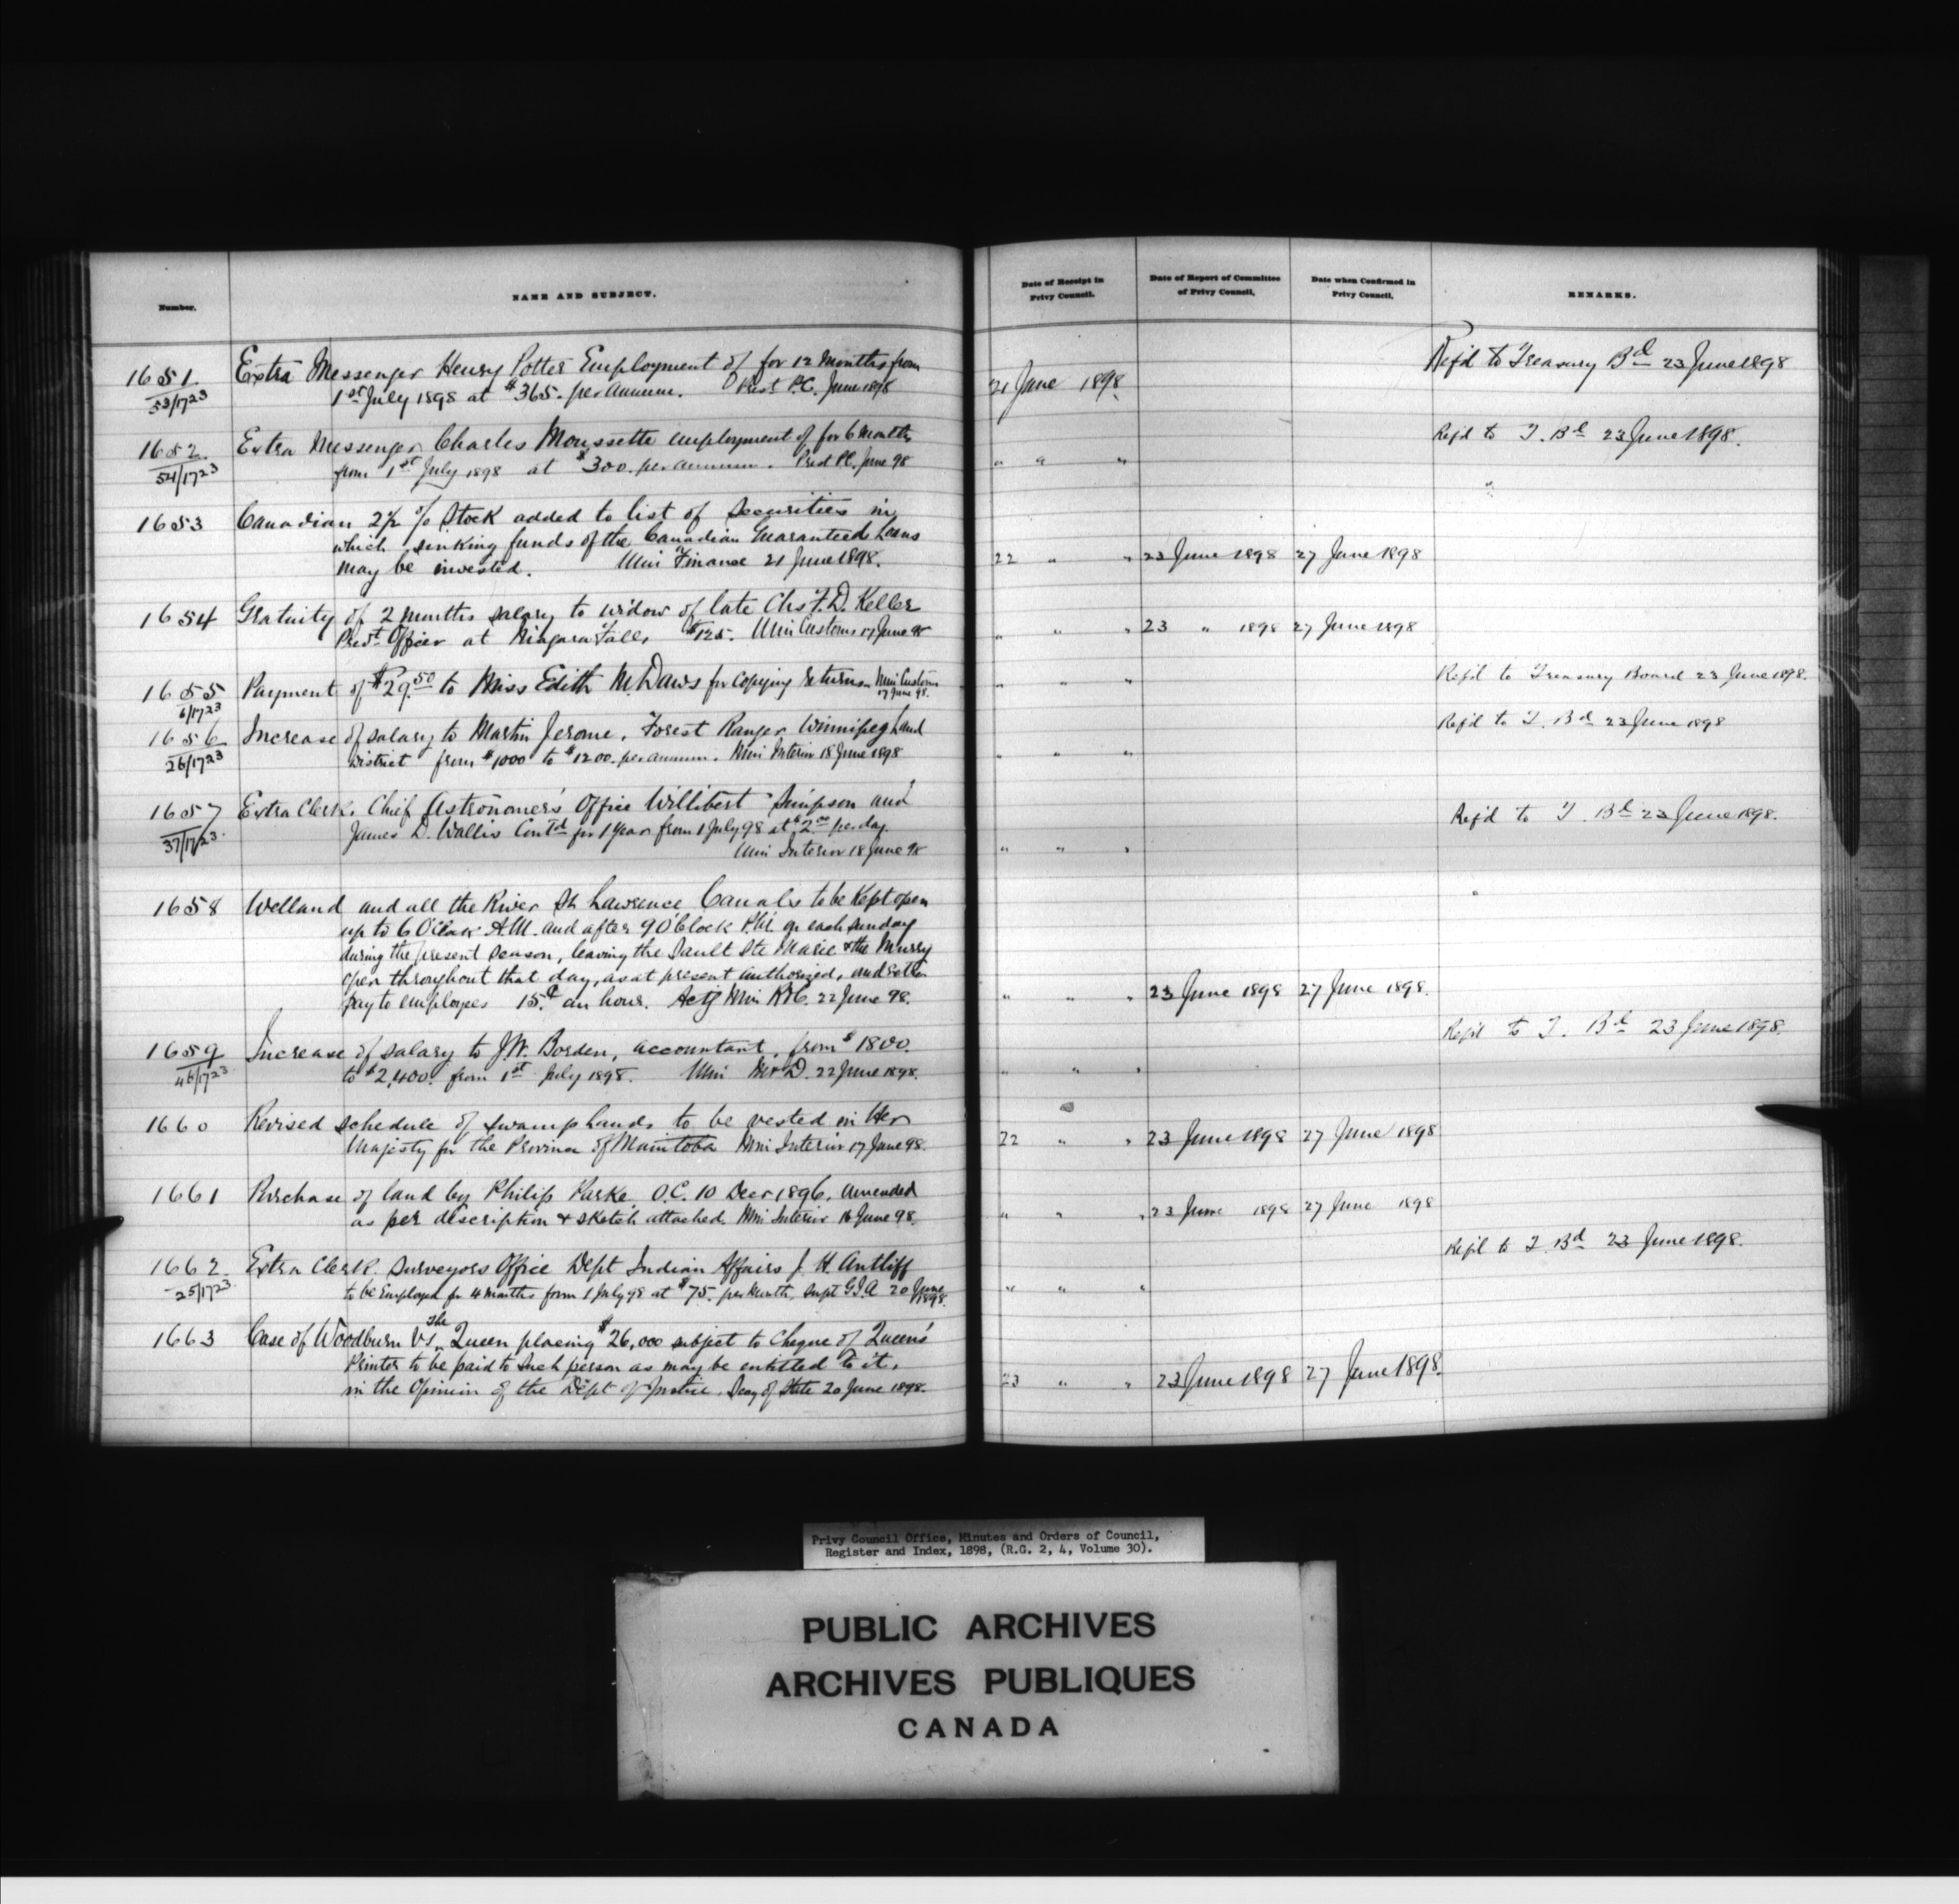 Number.
NAME AND SUBJECT.
Date of Receipt in
Privy Council.
Date of Report of Committee
of Privy Council.
Date when Confirmed in
Privy Council.
REMARKS.
1651
53/1723
Extra Messenger Henry Potter Employment of for 12 Months from
1st July 1898 at $365. per annum. Prest P.C. June 1898
21 June 1898.
Ref'd to Treasury Bd 23 June 1898
1652
54/1723
Extra Messenger Charles Moussette employment of for 6 Months
from 1st July 1898 at $300. per annum. Prest P.C. June 98
" " "
Ref'd to T. Bd 23 June 1898.
1653
Canadian 2½ % Stock added to list of Securities in
which sinking funds of the Canadian Guaranteed Loans
may be invested. Min Finance 21 June 1898.
22 " " 23 June 1898 27 June 1898
1654
Gratuity of 2 months salary to widow of late Chs F. D. Keller
Prevt Officer at Niagara Falls $125. Min Customs 17 June 98
" " " 23 " 1898 27 June 1898
1655
6/1723
Payment of $29.50 to Miss Edith McDaws for copying returns Min Customs
17 June 98.
" " "
Ref'd to Treasury Board 23 June 1898.
1656
26/1723
Increase of salary to Martin Jerome, Forest Ranger Winnipeg Land
District from $1000 to $1200. per annum. Min Interior 18 June 1898
" " "
Ref'd to T. Bd 23 June 1898
1657
37/1723.
Extra Clerk. Chief Astronomer's Office Willibert Simpson and
James D. Wallis Contd for 1 Year from 1 July 98 at $2.00 per day.
Min Interior 18 June 98
" " "
Ref'd to T. Bd 23 June 1898.
1658
Welland and all the River St Lawrence Canals to be kept open
up to 6 O'Clock A.M. and after 9 O'Clock P.M. on each Sunday
during the present season, leaving the Sault Ste Marie & the Murray
open throughout that day, as at present authorized, and
pay to employees 15.c an hour. Actg Min R&C. 22 June 98.
" " " 23 June 1898 27 June 1898.
1659
46/1723
Increase of salary to J.W. Borden, accountant, from $1800.
to $2,400. from 1st July 1898. Min M&D. 22 June 1898.
" " "
Ref'd to T. Bd 23 June 1898.
1660
Revised schedule of swamp lands to be vested in Her
Majesty for the Province of Manitoba Min Interior 17 June 98.
22 " " 23 June 1898 27 June 1898
1661
Purchase of land by Philip Parke. O.C. 10 Decr 1896. amended
as per description & sketch attached. Min Interior 16 June 98.
" " " 23 June 1898 27 June 1898
1662
25/1723.
Extra Clerk. Surveyors Office Dept Indian Affairs J. H. Antliff
to be Employed for 4 months from 1 July 98 at $75. per Month. Supt G.I.A 20 June
1898.
" " "
Ref'd to T. Bd 23 June 1898.
1663
Case of Woodburn Vs. the Queen placing $26,000 subject to Cheque of Queen's
Printer to be paid to such person as may be entitled to it,
in the Opinion of the Dept of Justice. Secy of State 20 June 1898.
23 " " 23 June 1898 27 June 1898.
Privy Council Office, Minutes and Orders of Council,
Register and Index, 1898, (R.G. 2, 4, Volume 30).
PUBLIC ARCHIVES
ARCHIVES PUBLIQUES
CANADA